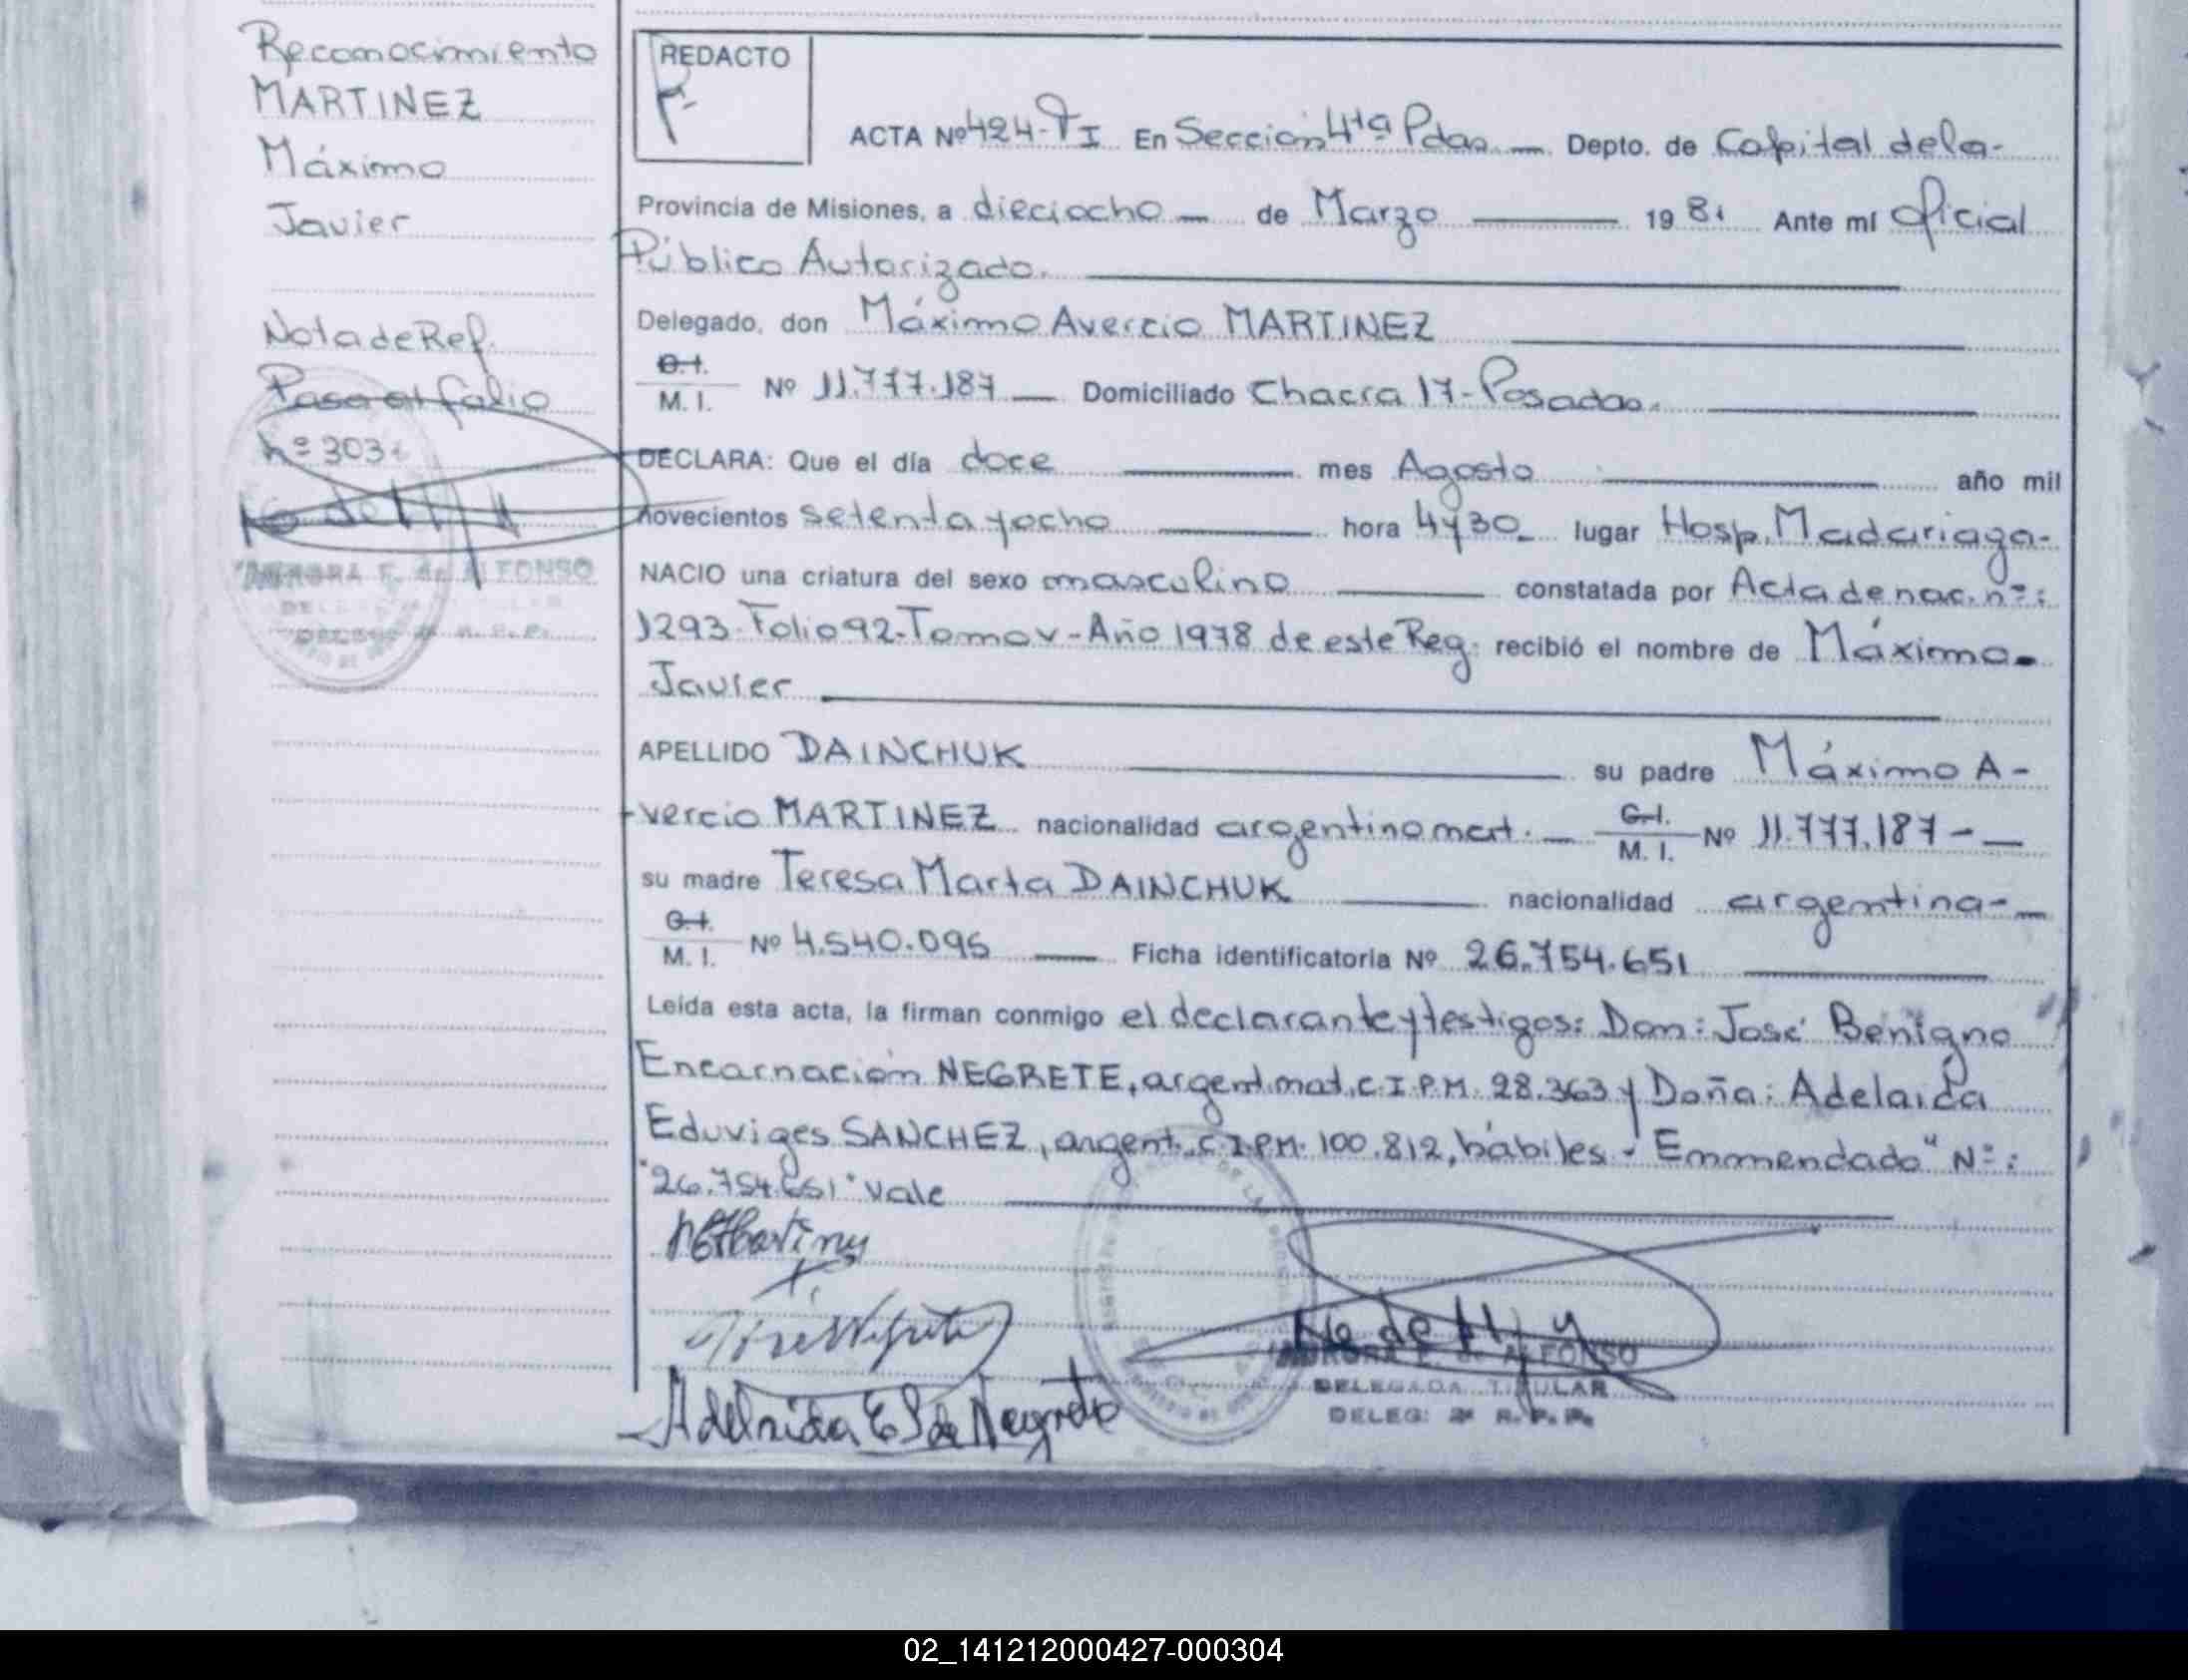 Reconocimiento
MARTINEZ
Máximo
Javier
Nota de Ref.
Pasa al folio
nº 303
AURORA E. de ALFONSO
REDACTO
ACTA Nº 424-TI En Sección 4ta Pdas Depto. de Capital de la-
Provincia de Misiones, a dieciocho de Marzo 1981 Ante mí Oficial
Público Autorizado.
Delegado, don Máximo Avercio MARTINEZ
C.I.
M. I. Nº 11.777.187 Domiciliado Chacra 17-Posadas.
DECLARA: Que el día doce mes Agosto año mil
novecientos setenta y ocho hora 4 y 30 lugar Hosp. Madariaga-
NACIO una criatura del sexo masculino constatada por Acta de nac. nº:
1293-Folio 92-Tomo V-Año 1978 de este Reg. recibió el nombre de Máximo-
Javier
APELLIDO DAINCHUK su padre Máximo A-
vercio MARTINEZ nacionalidad argentino mat. C.I.
M. I. Nº 11.777.187-
su madre Teresa Marta DAINCHUK nacionalidad argentina-
C.I.
M. I. Nº 4.540.095 Ficha identificatoria Nº 26.754.651
Leída esta acta, la firman conmigo el declarante y testigos: Don: José Benigno
Encarnación NEGRETE, argent. mat. C.I.P.M. 28.363 y Doña: Adelaida
Eduviges SANCHEZ, argent. C.I.P.M. 100.812, hábiles - Emmendado "Nº:
"26.754.651" vale
Adelaida E S de Negrete
AURORA E. de ALFONSO
DELEGADA TITULAR
DELEG: 2ª R. P. P.
02_141212000427-000304